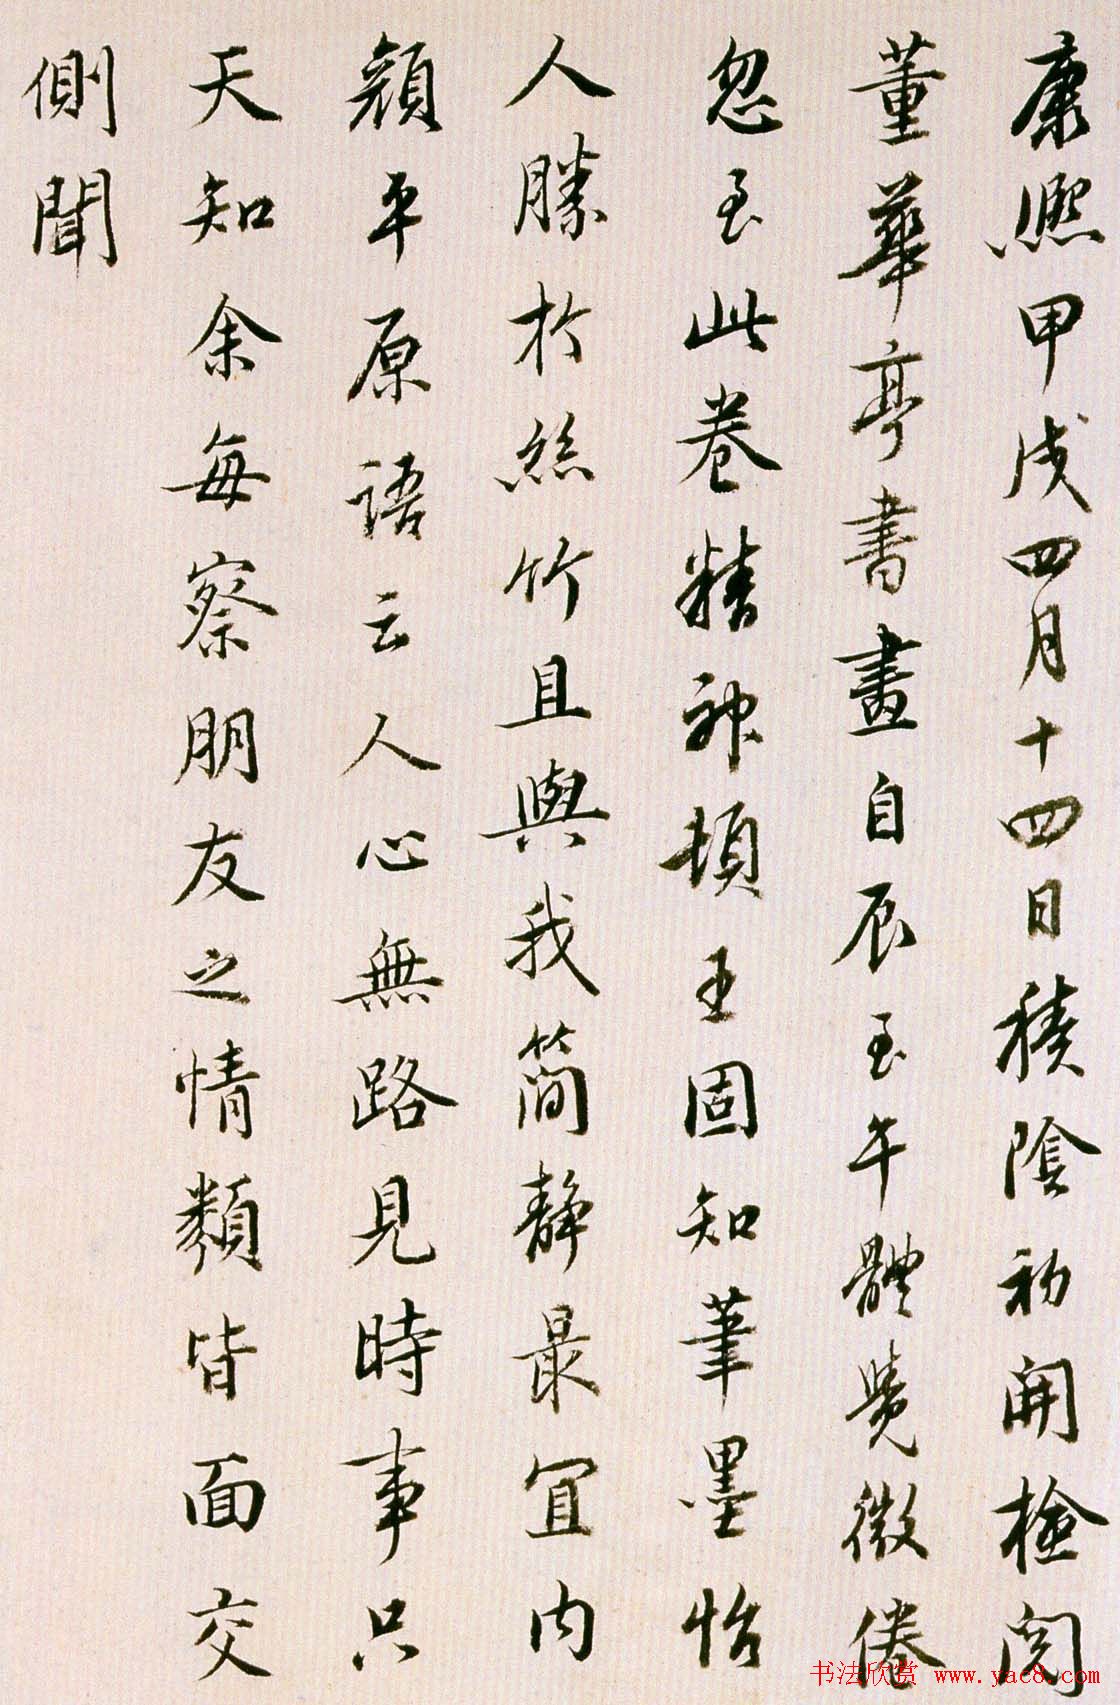 康熙甲戌四月十四日積陰初開檢閱
董華亭書畫自辰至午體覺微倦
忽至此卷精神頓王固知筆墨怡
人勝於絲竹且與我簡静最宜內
顏平原語云人心無路見時事只
天知余每察朋友之情類皆面交
側聞
书法欣赏 www.yac8.com